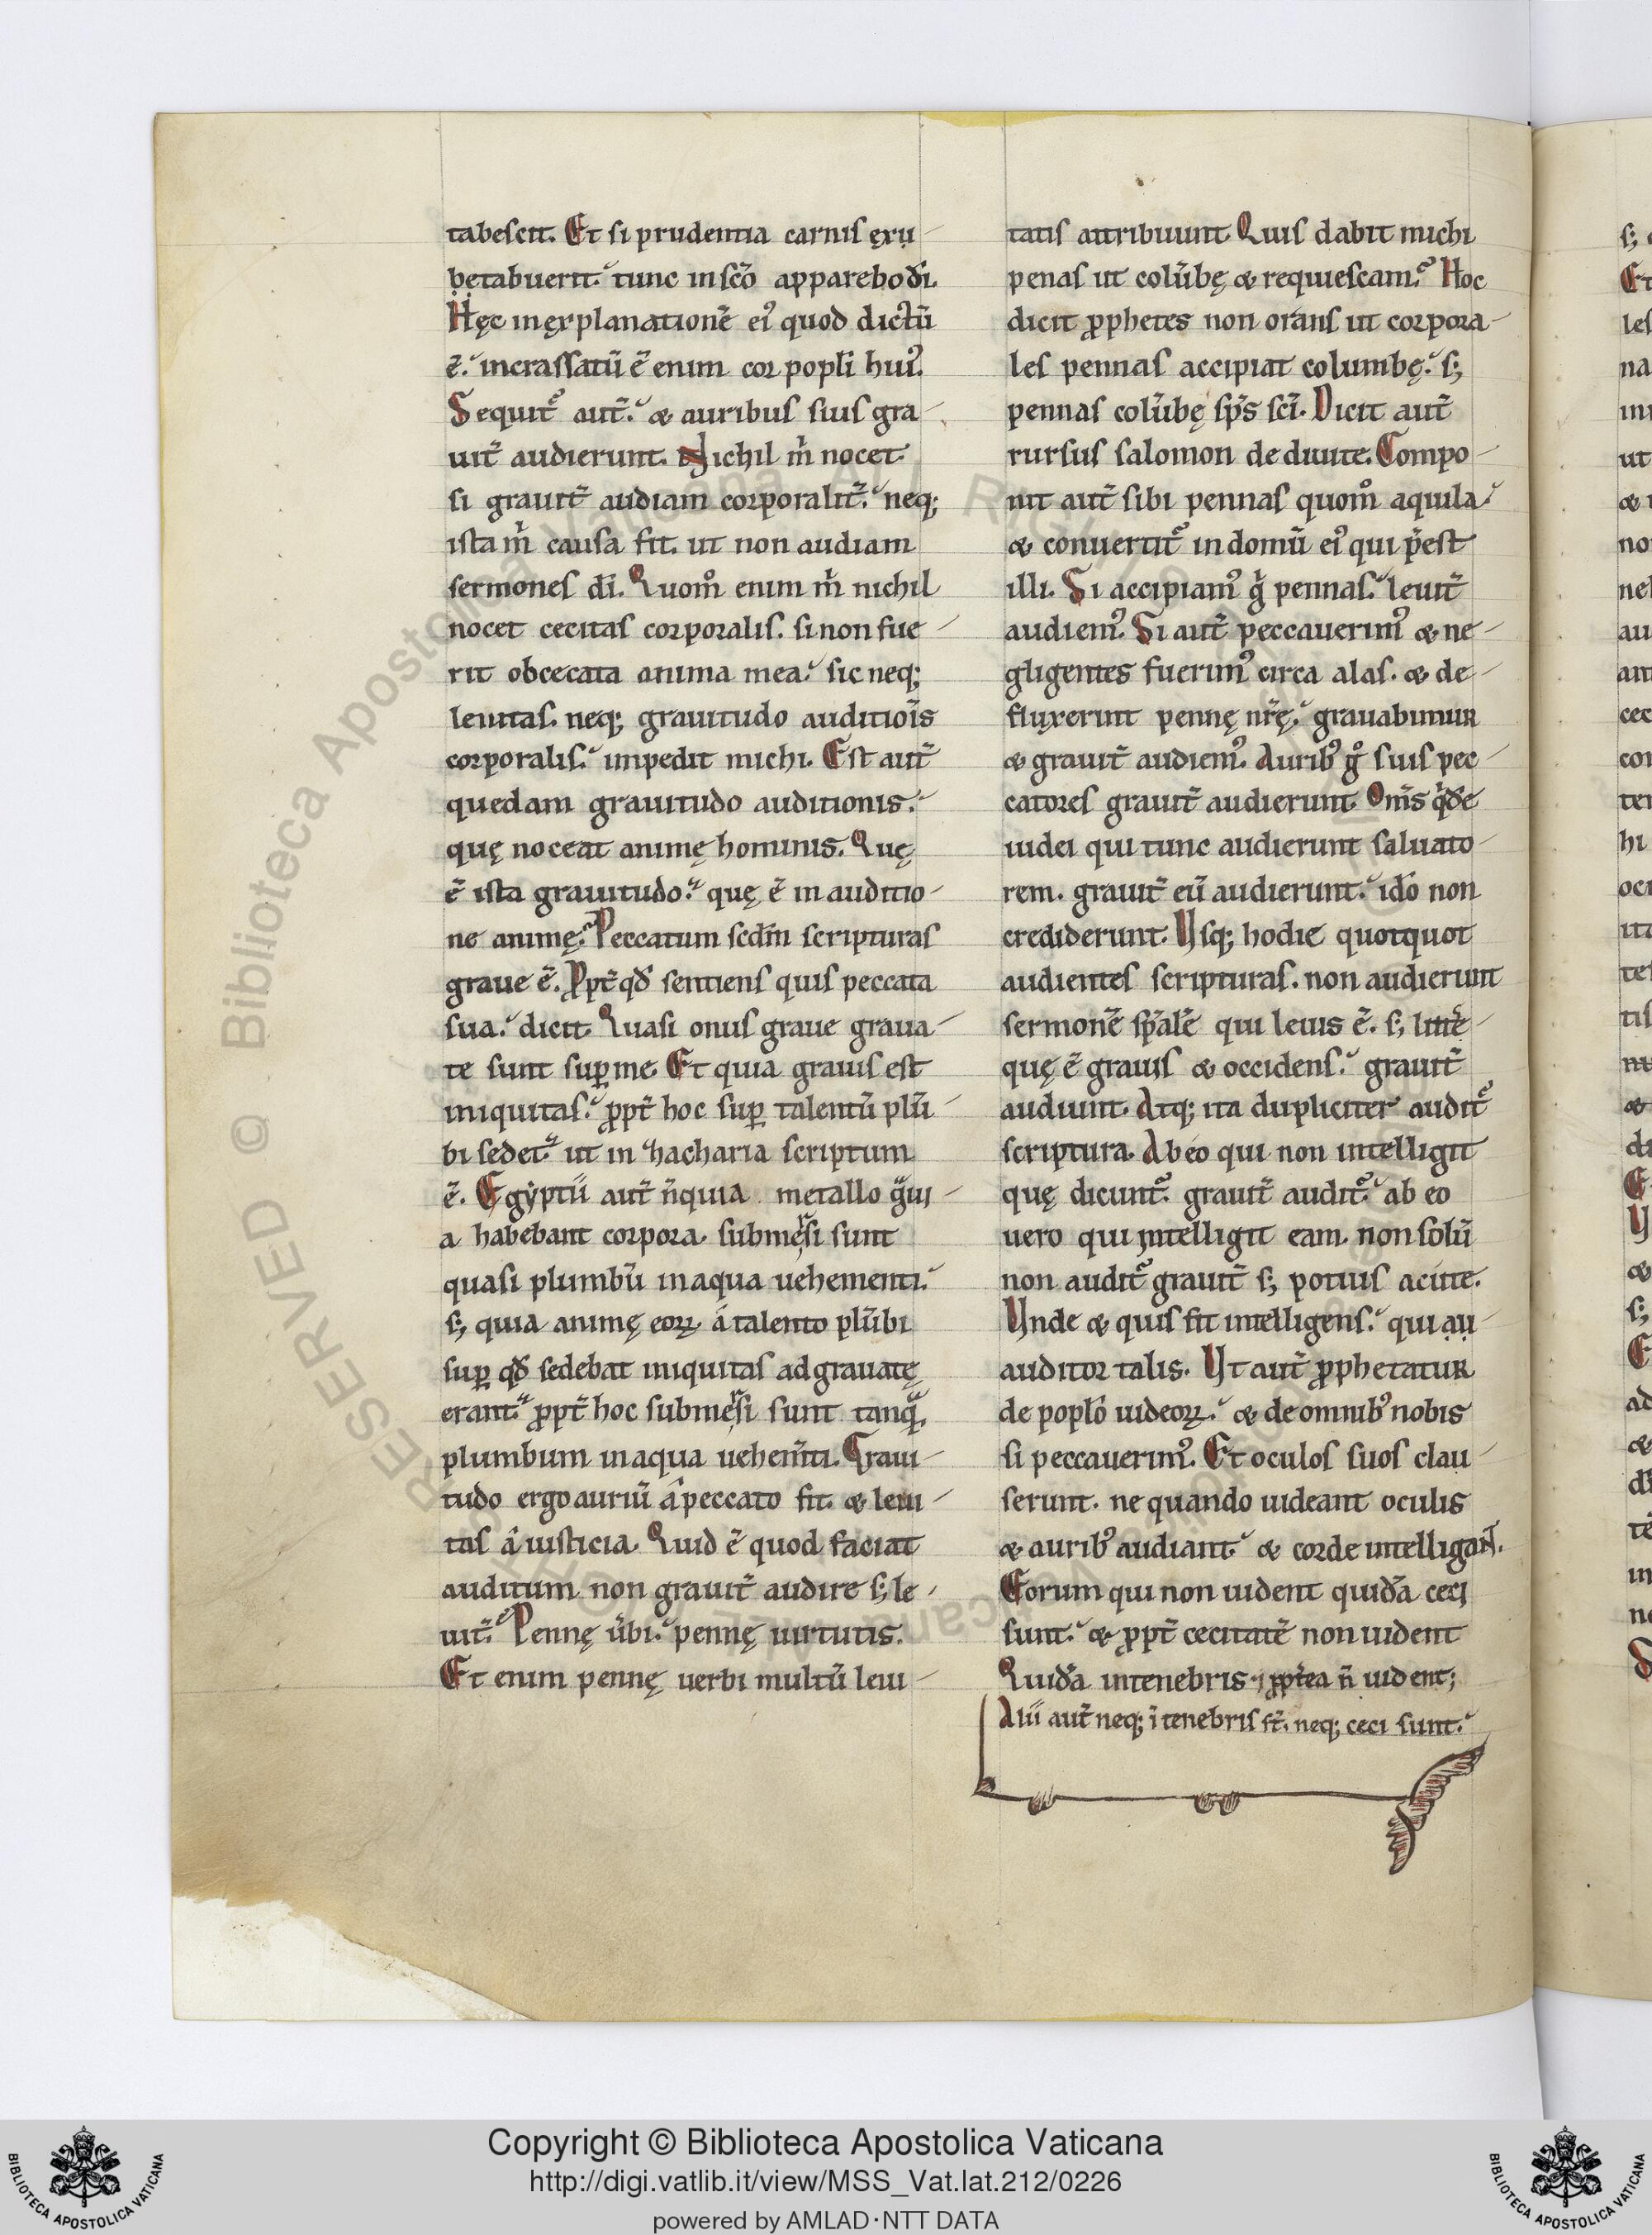 tabescit. Et si prudentia carnis exu
betabuerit. tunc in sc̄o apparebo dī.
Hęc in explanationē ei᾽ quod dictū
ē. incrassatū ē enim cor popli hui᾽.
Sequit᷑ aut̄. & auribus suis gra
uit̄ audierunt. Nichil ṁ nocet
si grauit̄ audiam corporalit̄. neq;
ista ṁ causa fit. ut non audiam
sermones dī. Quom̊ enim ṁ nichil
nocet cecitas corporalis. si non fue
rit obcecata anima mea. sic neq;
leuitas. neq; grauitudo auditiōis
corporalis. impedit michi. Est aut̄
quedam grauitudo auditionis.
quę noceat animę hominis. Quę
ē ista grauitudo. quę ē in auditio
ne animę. Peccatum scd̄m scripturas
graue ē. Ꝓpt̄ qđ sentiens quis peccata
sua. dicit. Quasi onus graue graua
te sunt suꝑ me. Et quia grauis est
iniquitas. ꝓpt̄ hoc suꝑ talentū plū
bi sedet. ut in zhacharia scriptum
ē. Egyptii aut̄ n̄ quia metallo g̃ui
a habebant corpora. submersi sunt
quasi plumbū in aqua uehementi.
s; quia animę eoꝝ á talento plūbi
suꝑ qđ sedebat iniquitas adgrauatę
erant. ꝓpt̄ hoc submersi sunt tanq̃
plumbum in aqua uehem̄ti. Graui
tudo ergo auriū â peccato fit. & leui
tas â iusticia. Quid ē quod faciat
auditum non grauit̄ audire s; le
uit̄. Pennę ūbi. pennę uirtutis.
Et enim pennę uerbi multū leui
tatis attribuunt. Quis dabit michi
penas ut colūbę & requiescam. Hoc
dicit ꝓphetes non orans ut corpora
les pennas accipiat columbę. s;
pennas colūbę sp̄s sc̄i. Dicit aut̄
rursus salomon de diuite. Compo
nit aut̄ sibi pennas quom̊ aquila
& conuertit᷑ in domū ei᾽ qui p̄est
illi. Si accipiam᾽ g̊ pennas. leuit̄
audiem᾽. Si aut̄ peccauerim᾽ & ne
gligentes fuerim᾽ circa alas. & de
fluxerint pennę nr̄ę. grauabimur
& grauit̄ audiem᾽. Aurib᾽ g̊ suis pec
catores grauit̄ audierunt. Om̄s q̇dē
iudei qui tunc audierunt saluato
rem. grauit̄ eū audierunt. idō non
crediderunt. Usq; hodie quotquot
audientes scripturas. non audierunt
sermonē sp̄alē qui leuis ē. s; litterę
quę ē grauis & occidens. grauit̄
audiunt. Atq; ita dupliciter audit᷑
scriptura. Ab eo qui non intelligit
quę dicunt᷑. grauit̄ audit᷑. ab eo
uero qui intelligit eam. non solū
non audit᷑ grauit̄ s; potius acute.
Unde & quis fit intelligens. qui au
auditor talis. Ut aut̄ ꝓphetatur
de poplō iudeoꝝ. & de omnib᾽ nobis
si peccauerim᾽. Et oculos suos clau
serunt. ne quando uideant oculis
& aurib᾽ audiant. & corde intelligant.
Eorum qui non uident quidā ceci
sunt. & ꝓpt̄ cecitatē non uident
Quidā in tenebris. ꝓpt̄ea n̄ uident;
Alii aut̄ neq; ī tenebris st̄. neq; ceci sunt.
Copyright © Biblioteca Apostolica Vaticana
http://digi.vatlib.it/view/MSS_Vat.lat.212/0226
powered by AMLAD·NTT DATA